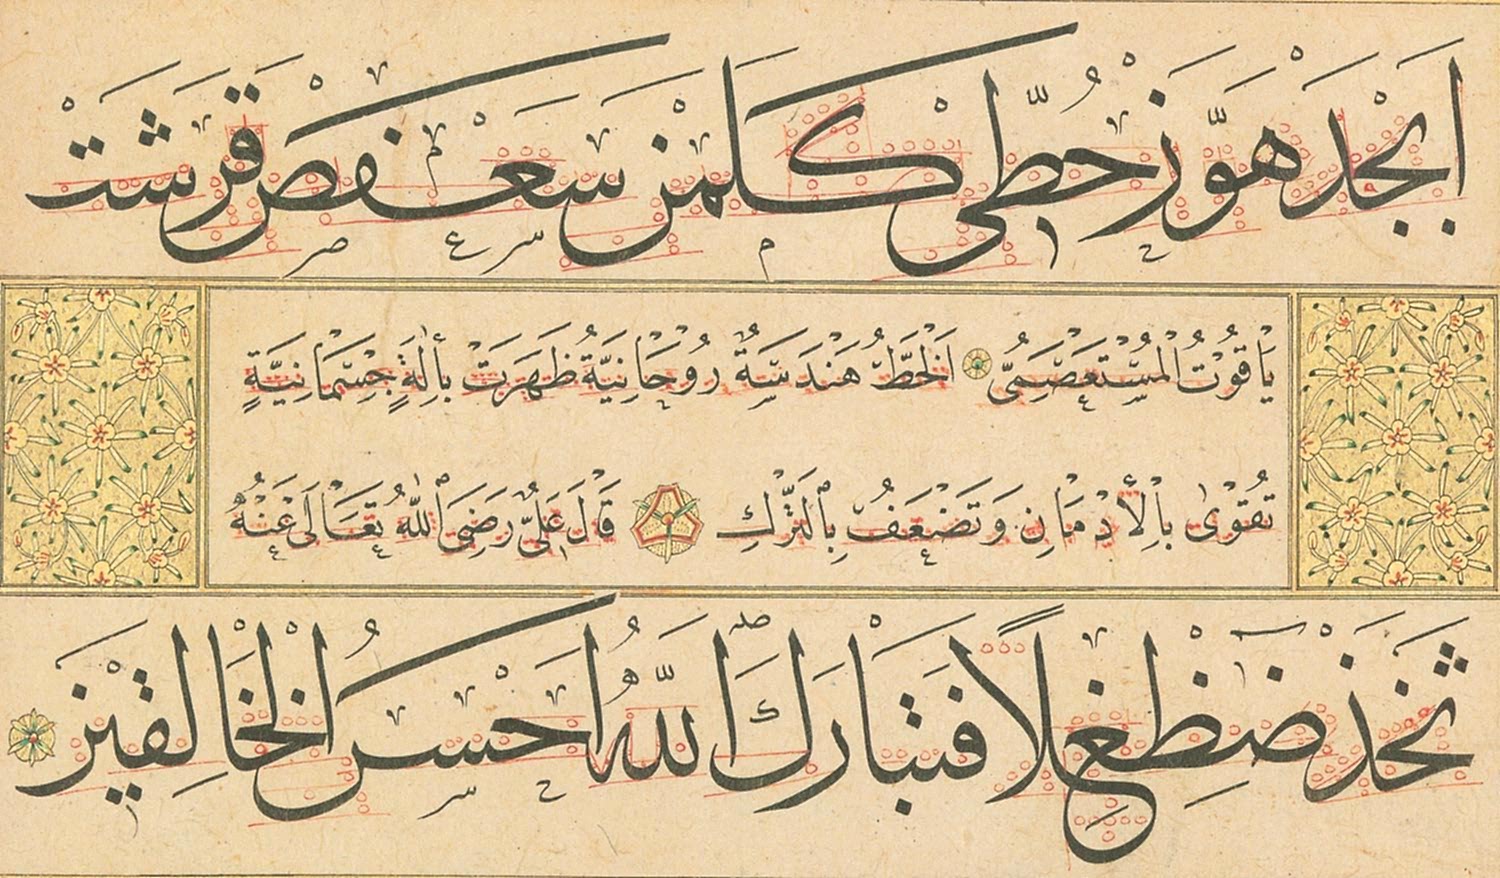 اَبْجَدْ هَوَّزْ حُطِّي كَلَمَنْ سَعْفَصْ قَرَشَتْ
يَاقُوْتُ الْمُسْتَعْصِمِيُّ اَلْخَطُّ هَنْدَسَةٌ رُوْحَانِيَّةٌ ظَهَرَتْ بِأٰلَةٍ جِسْمَانِيَّةٍ
تُقَوّٰى بِالْأِدْمَانِ وَتَضْعَفُ بِالتَّرْكِ قَالَ عَلِيٌّ رَضِيَ اللّٰهُ تَعَالَى عَنْهُ
ثَخَذْ ضَظِغْلًا فَتَبَارَكَ اللّٰهُ اَحْسَنُ الْخَالِقِيْنَ